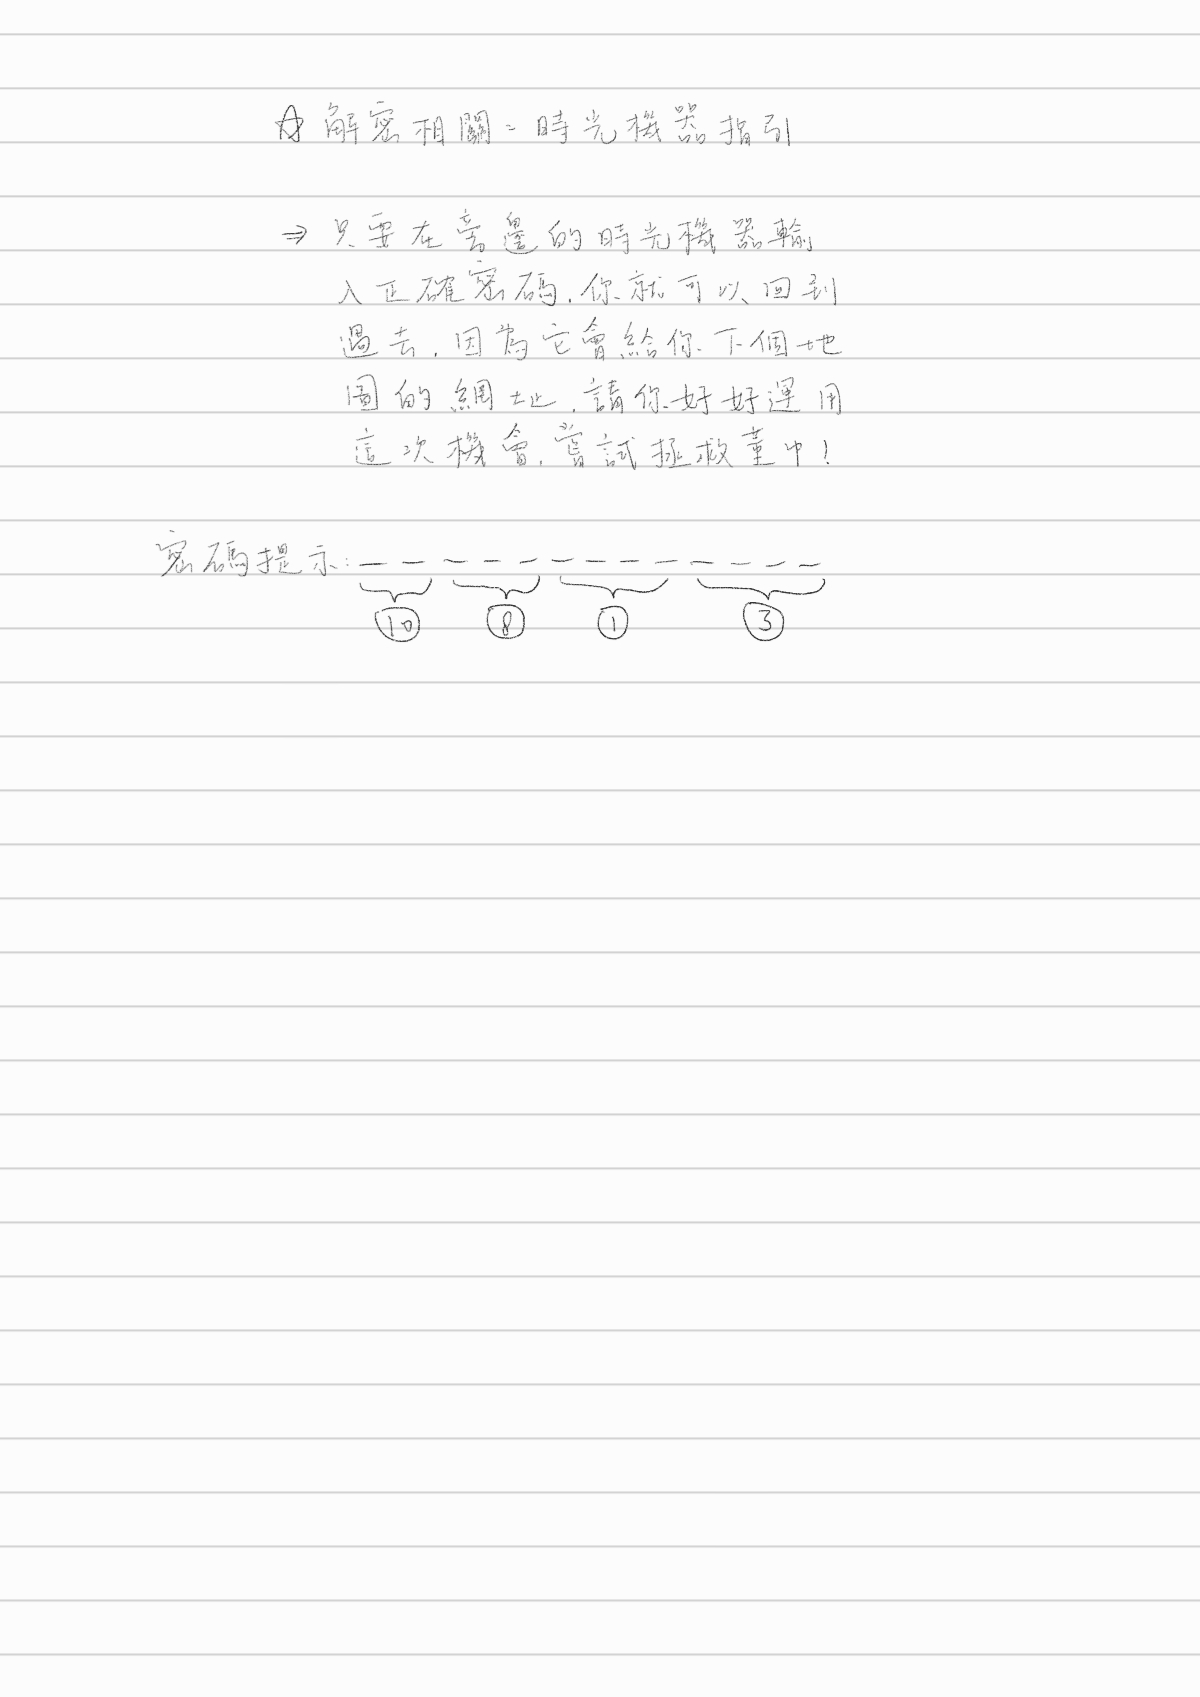 ☆ 解密相關：時光機器指引
⇒ 只要在旁邊的時光機器輸
入正確密碼，你就可以回到
過去，因為它會給你下個地
圖的網址，請你好好運用
這次機會，嘗試拯救董中！
密碼提示：_ _ _ _ _ _ _ _ _ _ _ _ _
⑩ ⑧ ① ③